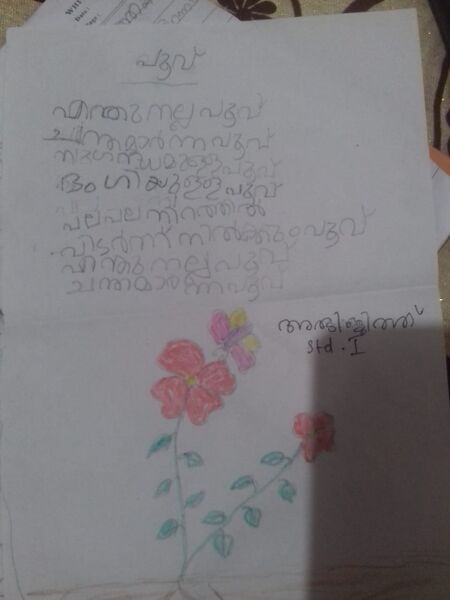 പൂവ്
എന്തു നല്ല പൂവ്
ചന്തമാർന്ന പൂവ്
സുഗന്ധമുള്ള പൂവ്
ഭംഗിയുള്ള പൂവ്
പല പല നിറത്തിൽ
വിടർന്ന് നിൽക്കും പൂവ്
എന്തു നല്ല പൂവ്
ചന്തമാർന്ന പൂവ്
അഭിജിത്ത്
Std. I